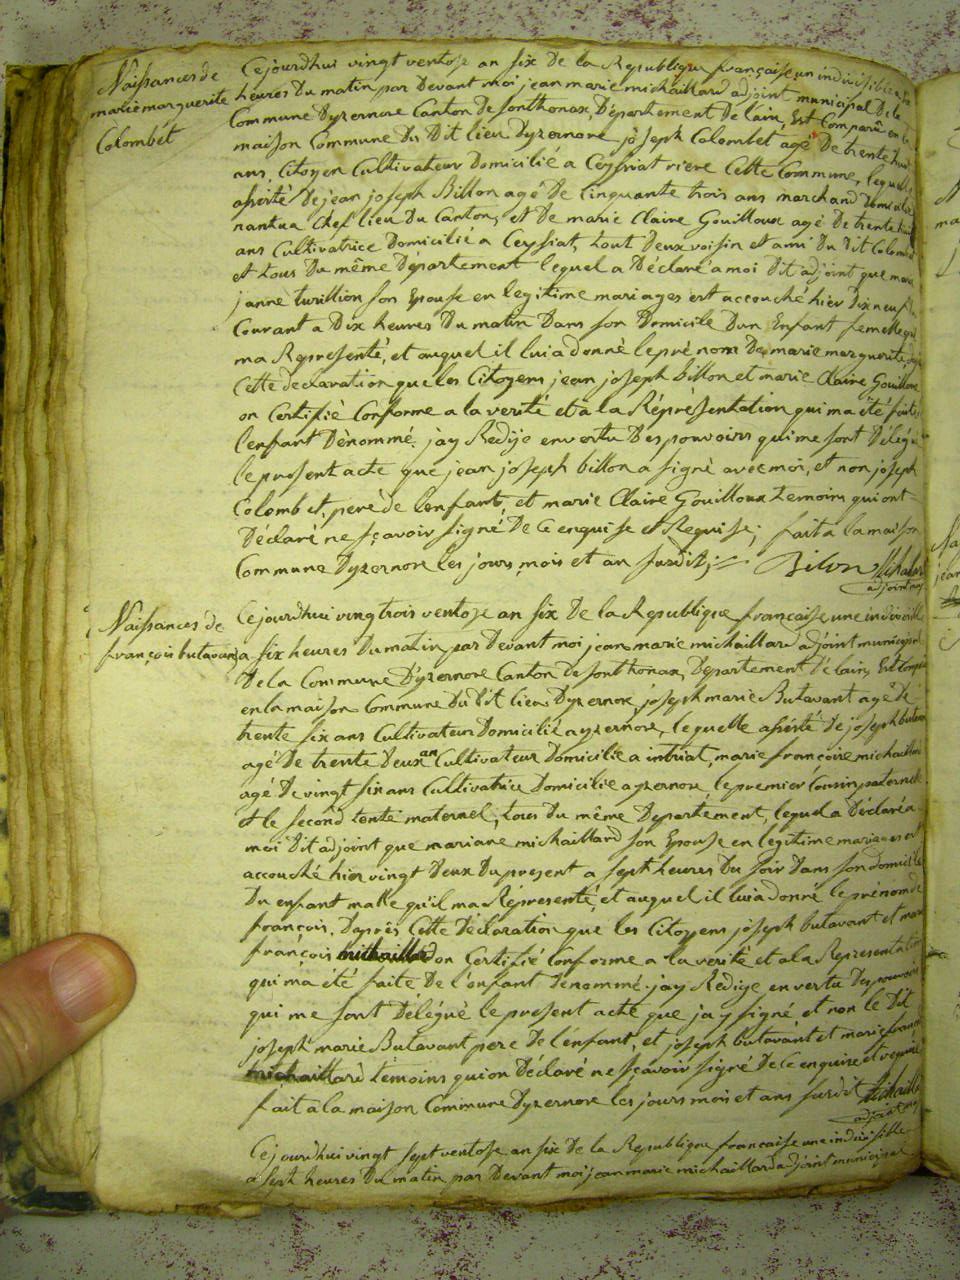 Naissances de
marie marguerite
Colombet
Cejourdhui vingt ventose an six De la Republique française, un indivisible a
heures Du matin par Devant moi jean marie michaillard adjoint municipal De la
Commune Dyzernore Canton De sonthonax, Département De lain, Est Comparû en la
maison Commune du Dit lieu Dyzernore joseph Colombet agé De trente huit
ans, Citoyen Cultivateur Domicilié a Ceyssiat riere Cette Commune, lequelle
assisté De jean joseph Billon agé De Cinquante trois ans marchand Domicilié
nantua Chef lieu Du Canton, et De marie Claire Gouilloux agé De trente huit
ans Cultivatrice Domicilié a Ceyssiat, tout Deux voisin et ami Du Dit Colombet
et tous Du même Département lequel a Déclaré a moi Dit adjoint que marie
janne turillion son Epouse en legitime mariages est accouché hier Dix neuf
Courant a Dix heures Du matin Dans son Domicile Dun Enfant femelle qui
ma Representé, et auquel il lui a donné le pré nom De marie marguerite,
Cette declaration que les Citoyens jean joseph Billon et marie Claire Gouilloux
on Certifié Conforme a la verité et a la Réprésentation qui ma été faite
lenfant Dénommé. jay Redije en vertu Des pouvoirs qui me sont Délégué
le present acte que jean joseph billon a signé avec moi, et non joseph
Colombet, peré de lenfant, et marie Claire Gouilloux temoins qui ont
Déclaré ne sçavoir signé De Ce enquise et Requise; fait a la maison
Commune Dyzernore les jours, mois et an susdit; Bilon Michaillard
adjoint
Naissances de
françois butavans
Cejourdhui vingtrois ventose an six De la Republique française une indivisible
a six heures Du matin par Devant moi jean marie michaillard adjoint municipal
De la Commune Dyzernore Canton De sonthonax, Departement De lain, Est Comparu
en la maison Commune Du Dit lieu Dyzernore joseph marie Butavant agé De
trente six ans Cultivateur Domicilié a yzernore, lequelle assisté De joseph butavant
agé De trente Deux an Cultivateur Domicilie a intriat, marie françoise michaillard
agé De vingt six ans Cultivatrice Domicilie a yzernore, le premier Cousin paternelle
et le second tente maternel, tous du même Departement, lequel a Déclaré a
moi Dit adjoint que mariane michaillard son Epouse en legitime mariages est
accouché hier vingt Deux Du present a sept heures Du soir Dans son domicile
Du enfant malle qu'il ma Répresenté, et auquel il lui a donné le prénom de
françois. Daprés Cette Déclaration que les Citoyens joseph butavant et marie
françois michaillard on Certifié Conforme a la verité et a la Representation
qui ma été faite De l'enfant Dénommé. jay Rédige en vertu Des pouvoirs
qui me sont Délégué le present acte que jay signé et non le Dit
joseph marie Butavant pere De l'enfant, et joseph butavant et marie françoise
michaillard témoins qui on Déclaré ne sçavoir signé De Ce enquise et requise
fait a la maison Commune Dyzernore les jours mois et ans susdit Michaillard
adjoint
Cejourdhui vingt sept ventose an six De la Republique française une indivisible
a sept heures Du matin, par Devant moi jean marie michaillard adjoint municipal